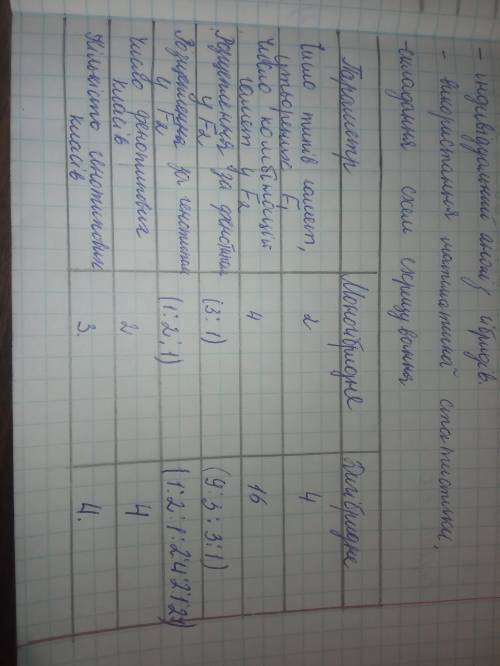 - індивідуальний аналіз гібридів.
- використання математичної статистики.
- складання схем схрещування
Параметр Моногібридне Дигібридне
Число типів гамет,
утворених F1 2 4
Число комбінацій
гамет у F2 4 16
Розщеплення за фенотипом
у F2 (3:1) (9:3:3:1)
Розщеплення за генотипом
у F2 (1:2:1) (1:2:1:2:4:2:1:2:1)
Число фенотипових
класів 2 4
Кількість генотипових
класів 3. 4.